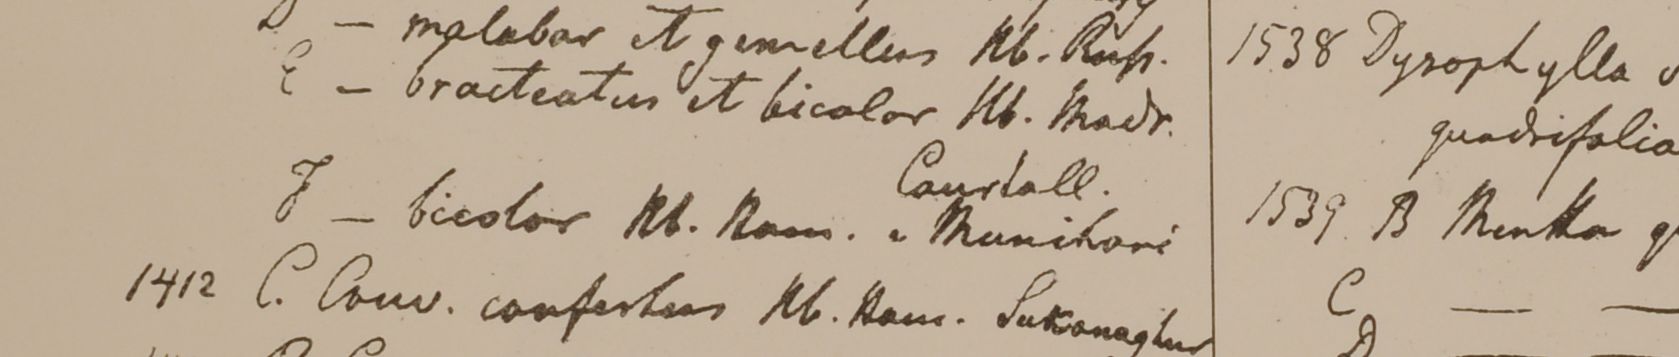 D — malabar et gemellus Hb. Russ.
E — bracteatus et bicolor Hb. Madr.
Courtall.
F — bicolor Hb. Ham. e Munihari
1412 C. Conv. confertus Hb. Ham. Sukanaghur
1538 Dysophylla
quadrifolia
1539 B Mentha
C — —
D